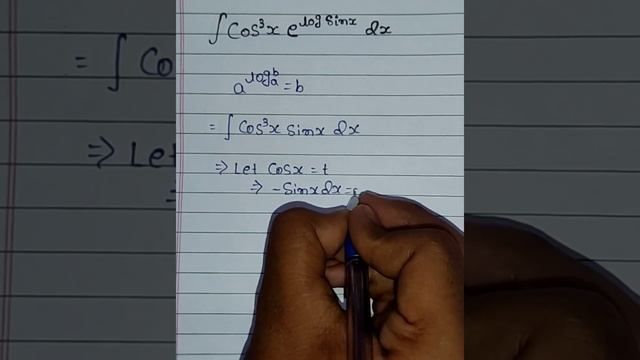 ∫ Cos³x e^(log sinx) dx
a^(log_a b) = b
= ∫ Cos³x sinx dx
⇒ Let Cosx = t
⇒ -Sinx dx =
= ∫ Co
⇒ Let